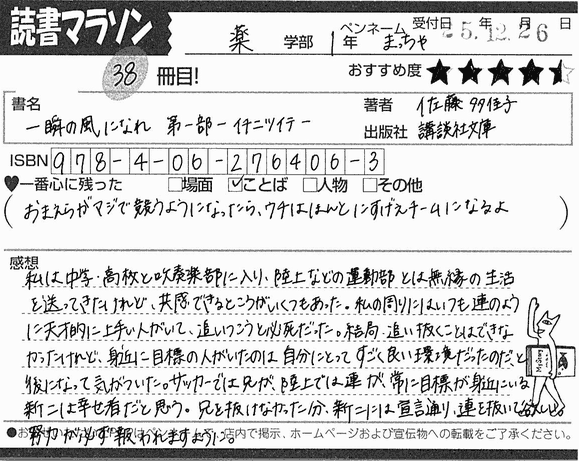 読書マラソン
薬 学部 1年 ペンネーム まっちゃ 受付日 25年12月26日
38 冊目!
おすすめ度 ★★★★
書名 一瞬の風になれ 第一部 -イチニツイテ-
著者 佐藤多佳子
出版社 講談社文庫
ISBN 978-4-06-276406-3
♥一番心に残った □場面 ☑ことば □人物 □その他
(おまえらがマジで競うようになったら、ウチはほんとにすげぇチームになるよ)
感想
私は中学・高校と吹奏楽部に入り、陸上などの運動部とは無縁の生活
を送ってきたけれど、共感できるところがいくつもあった。私の周りにはいつも連のよう
に天才的に上手い人がいて、追いつこうと必死だった。結局追い抜くことはできな
かったけれど、身近に目標の人がいたのは自分にとってすごく良い環境だったのだ、と
後になって気がついた。サッカーでは兄が、陸上では連が、常に目標が身近にいる
新二は幸せ者だと思う。兄を抜けなかった分、新二には宣言通り、連を抜いて欲しい。
努力が必ず報われますように。
店内で掲示、ホームページおよび宣伝物への転載をご了承ください。